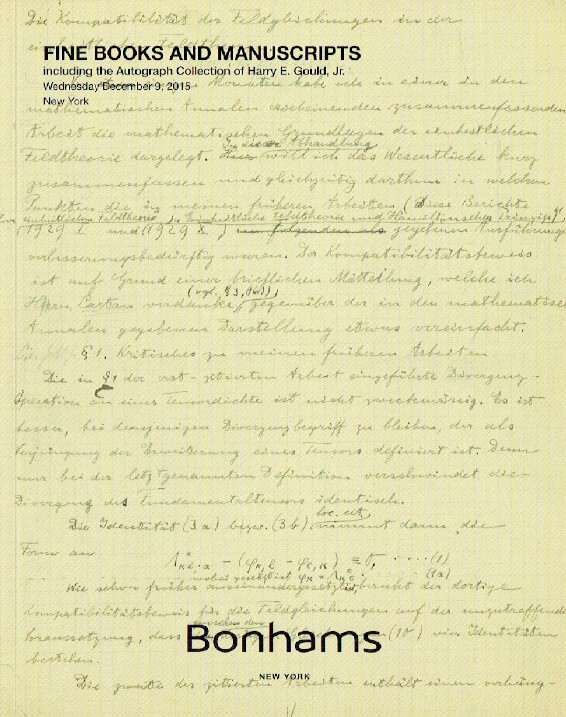 Die Kompatibilität der Feldgleichungen in der
FINE BOOKS AND MANUSCRIPTS
including the Autograph Collection of Harry E. Gould, Jr.
Wednesday December 9, 2015
New York
habe ich in einer in den
mathematischen Annalen erscheinenden zusammenfassenden
Arbeit die mathematischen Grundlagen der einheitlichen
In dieser Abhandlung
Feldtheorie dargelegt. will ich das Wesentliche kurz
zusammenfassen und gleichzeitig darthun in welchen
Punkten die in meinen früheren Arbeiten (diese Berichte
Zur einheitlichen Feldtheorie Einheitliche Feldtheorie und Hamiltonsches Prinzip
(1929 I und (1929 X.) im folgenden als gegebenen Ausführungen
verbesserungsbedürftig waren. Der Kompatibilitätsbeweis
ist auf Grund einer brieflichen Mitteilung, welche ich
(vgl. §3, 16)
Herrn Cartan verdanke, gegenüber der in den mathematischen
Annalen gegebenen Darstellung etwas vereinfacht.
§1. Kritisches zu meinen früheren Arbeiten
Die in §1 der erst-zitierten Arbeit eingeführte Divergenz-
Operation an einer Tensordichte ist nicht zweckmässig. Es ist
besser, bei demjenigen Divergenzbegriff zu bleiben, der als
Verjüngung der Erweiterung eines Tensors definiert ist. Denn
nur bei der letztgenannten Definition verschwindet die
Divergenz des Fundamentaltensors identisch.
loc. cit.
Die Identität (3a) bezw. (3b) nimmt dann die
Form an
(1)
(1a)
Wie schon früher auseinandergesetzt, beruht der dortige
Kompatibilitätsbeweis für die Feldgleichungen auf der unzutreffenden
zwischen den
Voraussetzung, dass (10) vier Identitäten
bestehen.
Bonhams
NEW YORK
Die zweite der zitierten Arbeiten enthält einen verhäng-